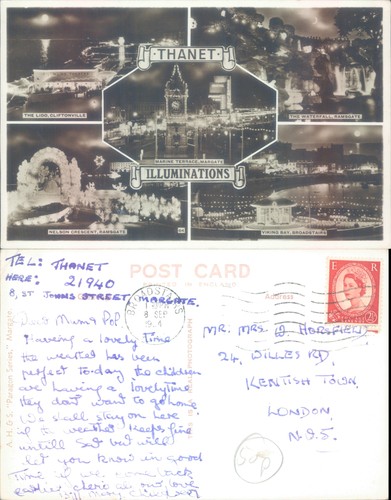 THANET
THE LIDO, CLIFTONVILLE
THE WATERFALL, RAMSGATE
MARINE TERRACE, MARGATE
NELSON CRESCENT, RAMSGATE
ILLUMINATIONS
VIKING BAY, BROADSTAIRS
TEL: THANET
HERE: 21940
8, ST JOHNS STREET, MARGATE.
POST CARD
Address
BROADSTAIRS
8 SEP
E R
2½
Dear Mum & Pop
Having a lovely Time
the weather has been
perfect to-day the children
are having a lovely time
they dont want to go home
We shall stay on here
if the weather keeps fine
untill Sat but will
let you know in good
time if we come back
earlier cherio all our love
MR. MRS. HORSFIELD
24, WILLES RD,
KENTISH TOWN,
LONDON,
N.5.
50p
A.H.D.S. "Paragon Series," Margate